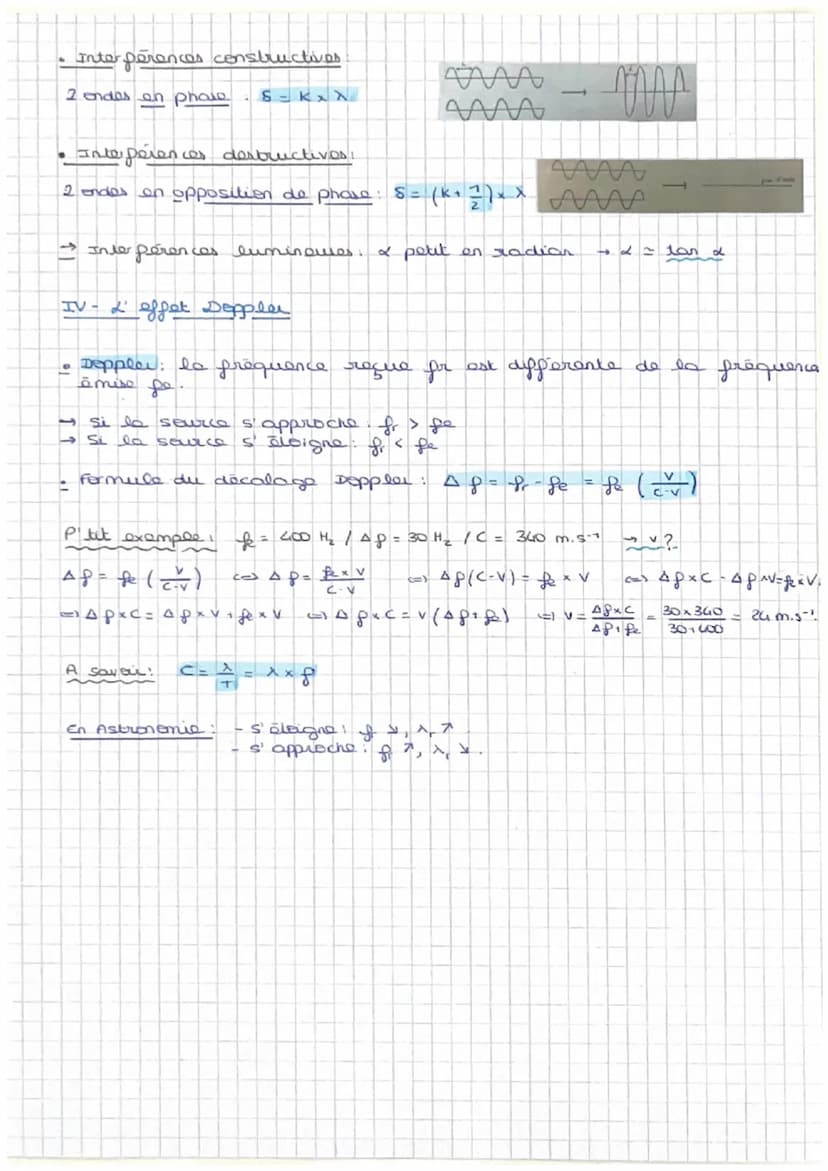 • Interférences constructives :
2 ondes en phase : δ = k × λ
• Interférences destructives :
2 ondes en opposition de phase : δ = (k + 1/2) × λ
→ Interférences lumineuses : α petit en radian → α ≈ tan α
IV - L'effet Doppler
• Doppler : la fréquence reçue fr est différente de la fréquence
émise fe.
→ Si la source s'approche : fr > fe
→ Si la source s'éloigne : fr < fe
• Formule du décalage Doppler : Δf = fr - fe = fe (V/(C-V))
P'tit exemple : fe = 400 Hz / Δf = 30 Hz / C = 340 m.s⁻¹ → v ?
Δf = fe (V/(C-V)) <=> Δf = (fe × V)/(C-V) <=> Δf(C-V) = fe × V <=> Δf×C - Δf×V = fe×V
<=> Δf×C = Δf×V + fe×V <=> Δf×C = V(Δf+fe) <=> V = (Δf×C)/(Δf+fe) = (30×340)/(30+400) = 24 m.s⁻¹.
A savoir : C = λ/T = λ × f
En Astronomie : - s'éloigne : fr ↘, λr ↗
- s'approche : fr ↗, λr ↘.